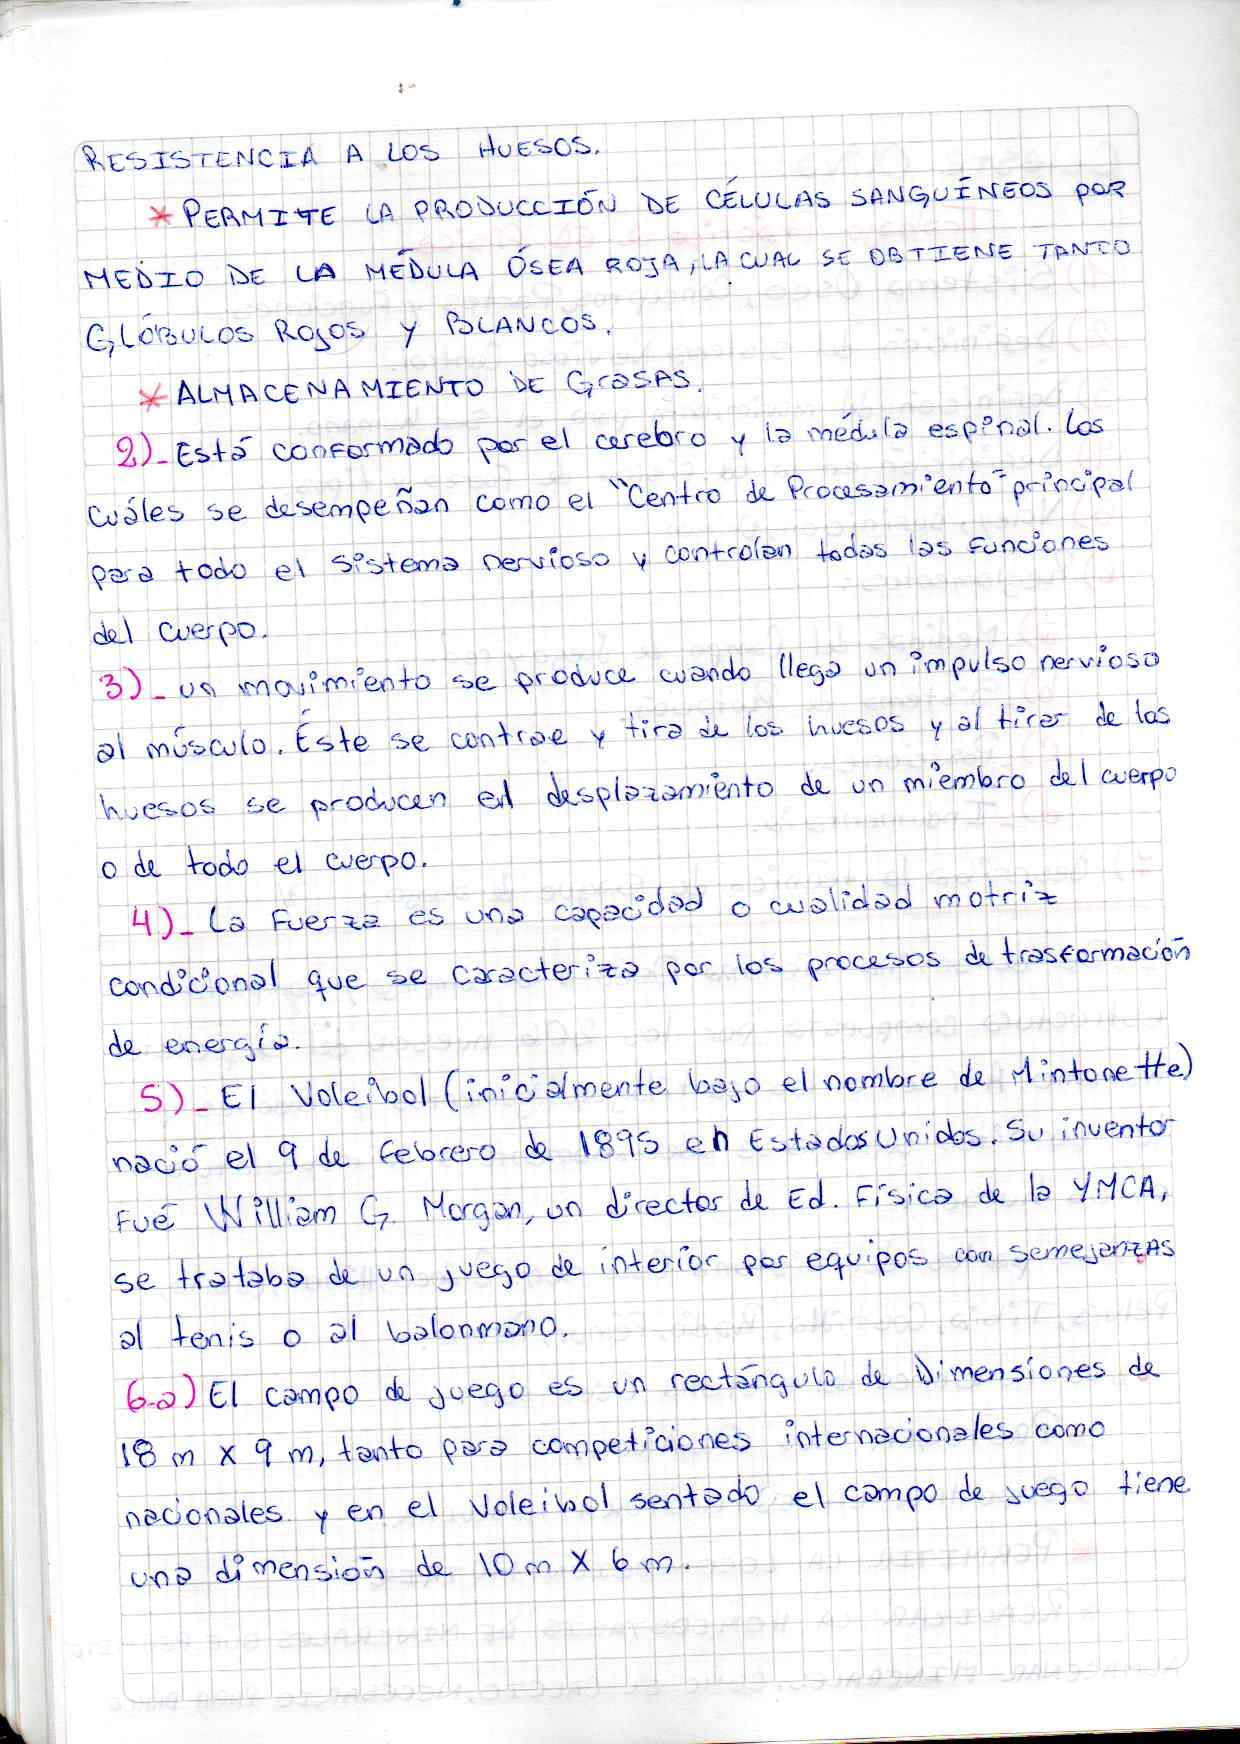 RESISTENCIA A LOS HUESOS.
* PERMITE LA PRODUCCIÓN DE CÉLULAS SANGUÍNEOS POR
MEDIO DE LA MÉDULA ÓSEA ROJA, LA CUAL SE OBTIENE TANTO
GLÓBULOS ROJOS Y BLANCOS.
* ALMACENAMIENTO DE GrasAS.
2)- Está conformado por el cerebro y la médula espinal. Los
cuáles se desempeñan como el "Centro de Procesamiento" principal
para todo el sistema nervioso y controlan todas las funciones
del cuerpo.
3)- un movimiento se produce cuando llega un impulso nervioso
al músculo. Éste se contrae y tira de los huesos y al tirar de los
huesos se producen el desplazamiento de un miembro del cuerpo
o de todo el cuerpo.
4)- La Fuerza es una capacidad o cualidad motriz
condicional que se caracteriza por los procesos de trasformación
de energía.
5)- El Voleibol (inicialmente bajo el nombre de Mintonette)
nació el 9 de febrero de 1895 en Estados Unidos. Su inventor
Fué William G. Morgan, un director de Ed. Física de la YMCA,
se trataba de un juego de interior por equipos con semejanzas
al tenis o al balonmano.
6-a) El campo de juego es un rectángulo de Dimensiones de
18 m X 9 m, tanto para competiciones internacionales como
nacionales y en el Voleibol sentado el campo de juego tiene
una dimensión de 10 m X 6 m.